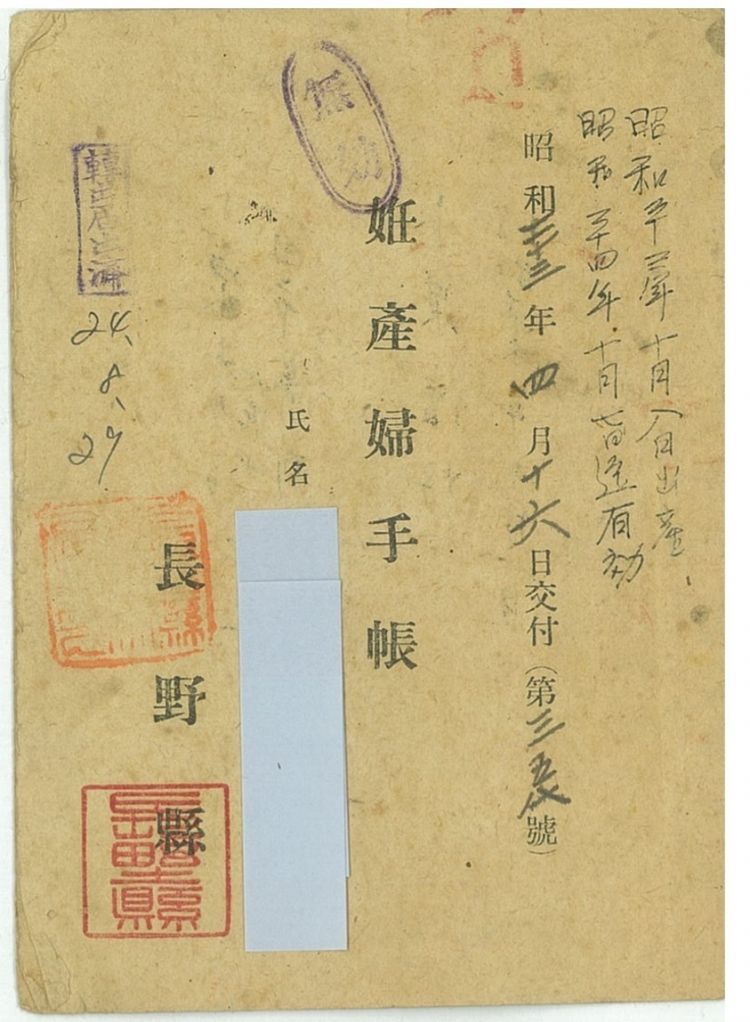 昭和二十三年十月八日出産
昭和二十四年十月七日迄有効
昭和二十三年四月十六日交付（第三五
號）
無効
姙產婦手帳
氏名
長野縣
長野縣
轉出屆出濟
24.8.27